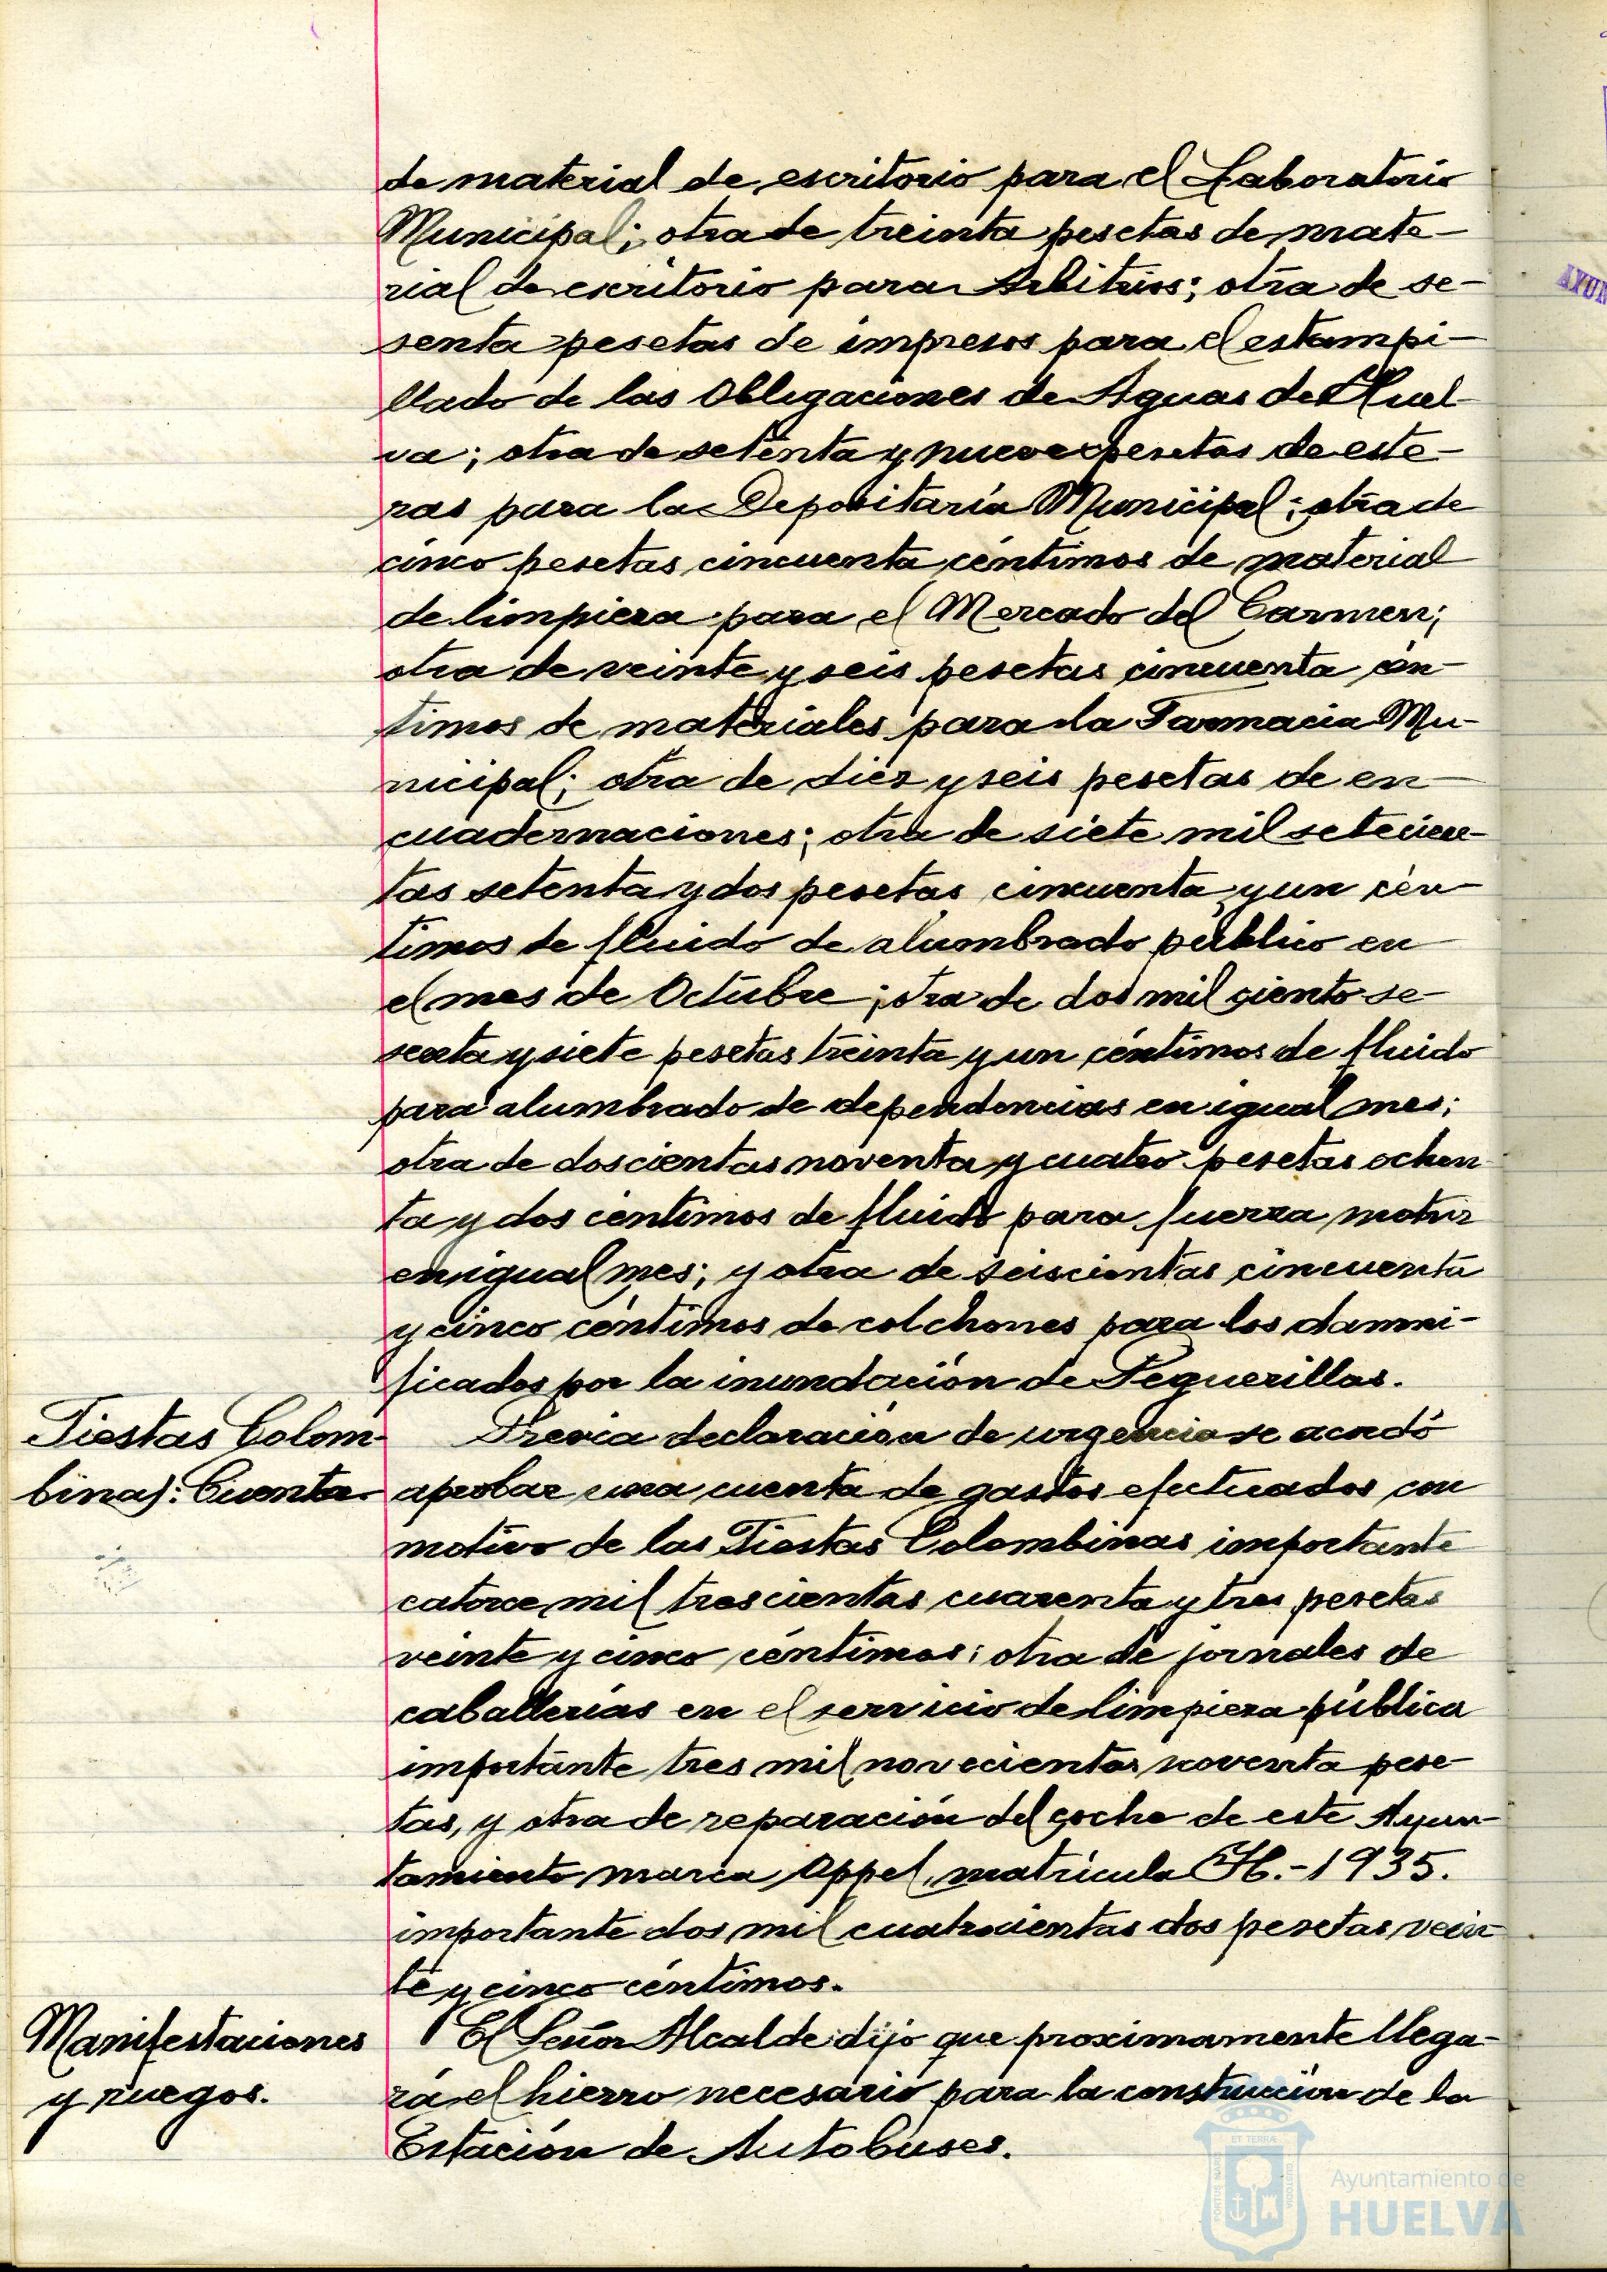 de material de escritorio para el Laboratorio
Municipal; otra de treinta pesetas de mate-
rial de escritorio para Arbitrios; otra de se-
senta pesetas de impresos para el estampi-
llado de las Obligaciones de Aguas de Huel-
va; otra de setenta y nueve pesetas de este-
ras para la Depositaría Municipal; otra de
cinco pesetas cincuenta céntimos de material
de limpieza para el Mercado del Carmen;
otra de veinte y seis pesetas cincuenta cén-
timos de materiales para la Farmacia Mu-
nicipal; otra de diez y seis pesetas de en-
cuadernaciones; otra de siete mil setecien-
tas setenta y dos pesetas cincuenta y un cén-
timos de fluido de alumbrado público en
el mes de Octubre; otra de dos mil ciento se-
senta y siete pesetas treinta y un céntimos de fluido
para alumbrado de dependencias en igual mes;
otra de doscientas noventa y cuatro pesetas ochen
ta y dos céntimos de fluido para fuerza motriz
en igual mes; y otra de seiscientas cincuenta
y cinco céntimos de colchones para los damni-
ficados por la inundación de Peguerillas.
Fiestas Colom-
binas: Cuenta
Previa declaración de urgencia se acordó
aprobar una cuenta de gastos efectuados con
motivo de las Fiestas Colombinas importante
catorce mil trescientas cuarenta y tres pesetas
veinte y cinco céntimos; otra de jornales de
caballerías en el servicio de limpieza pública
importante tres mil novecientas noventa pese-
tas, y otra de reparación del coche de este Ayun-
tamiento marca Oppel, matrícula H.-1935.
importante dos mil cuatrocientas dos pesetas vein-
te y cinco céntimos.
Manifestaciones
y ruegos.
El Señor Alcalde dijo que proximamente llega-
rá el hierro necesario para la construcción de la
Estación de Autobuses.
AYUN
ET TERRÆ
PORTUS MARIS
CUSTODIA
Ayuntamiento de
HUELVA